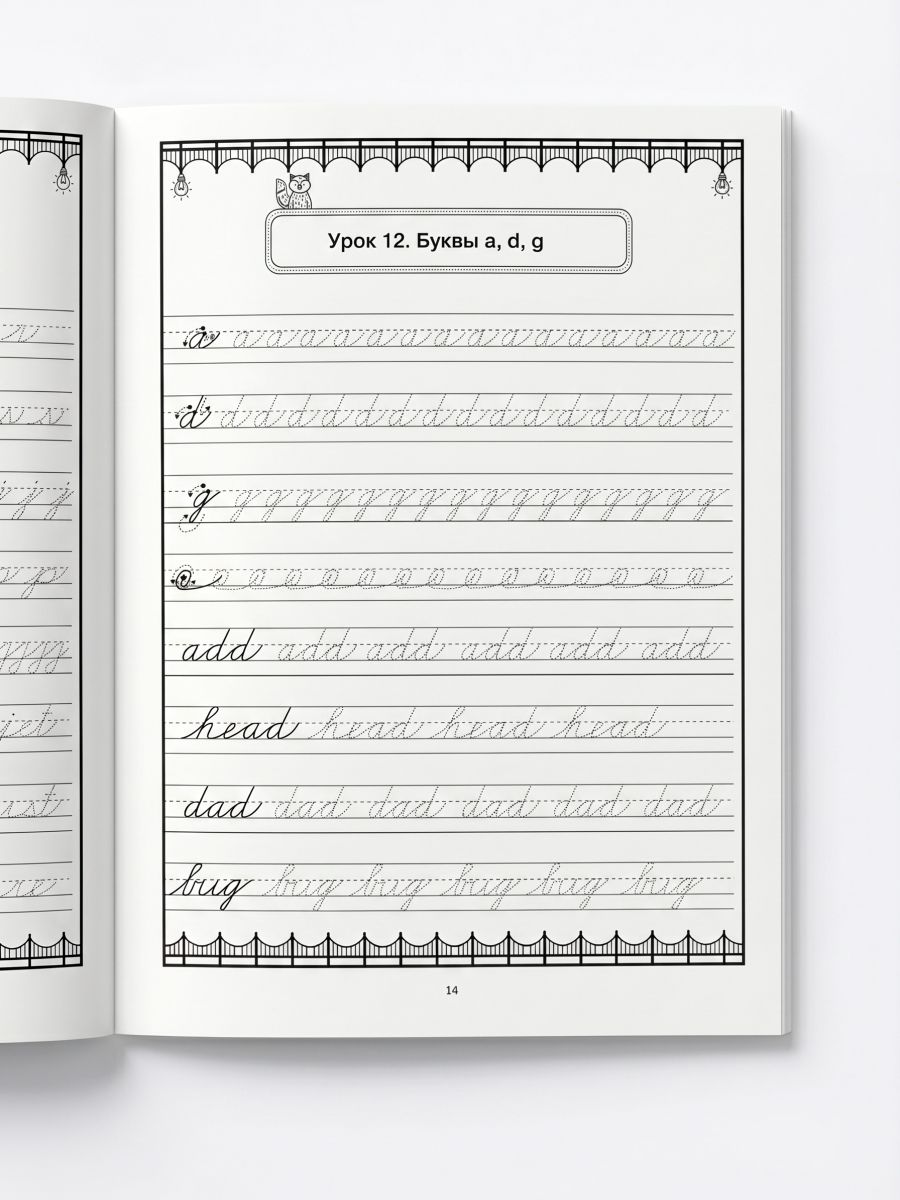 jet
Урок 12. Буквы a, d, g
a a a a a a a a a a a a a a a a
d d d d d d d d d d d d d d d d
g g g g g g g g g g g g g g g g g
add add add add add add
head head head head head
dad dad dad dad dad dad
bug bug bug bug bug bug
14